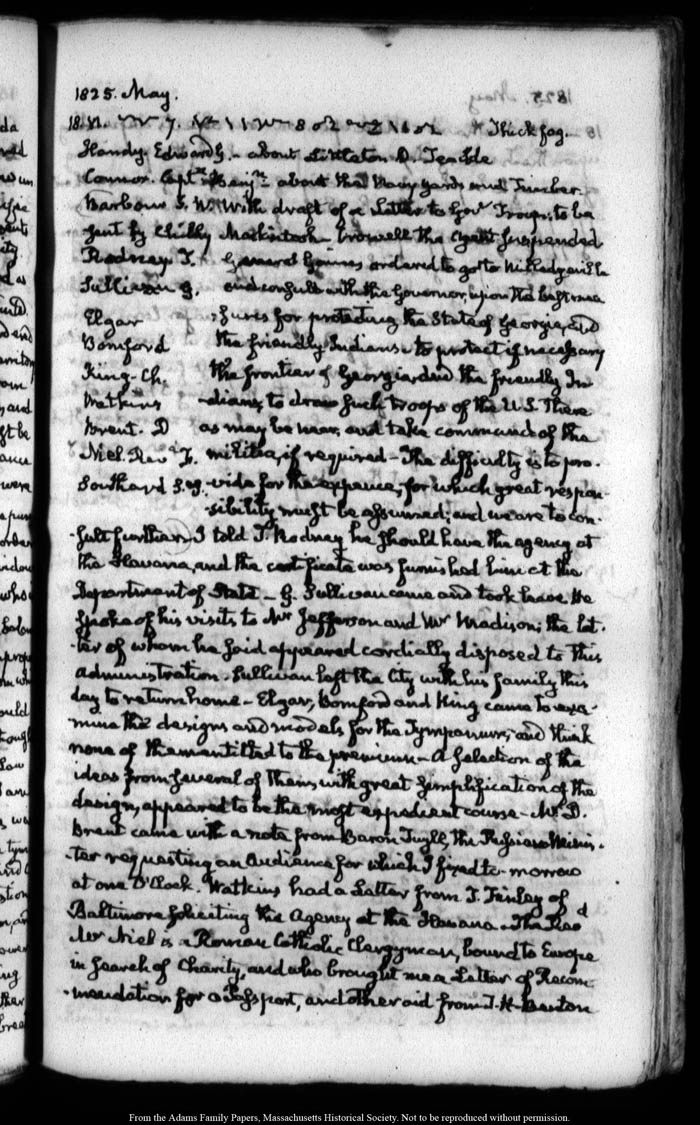 1825. May.
18. VI. Thick fog.
Handy. Edward G. - about Littleton D. Teackle
Connor. Captn. Benjn. about the Navy yards and Timber.
Barbour S. W. With draft of a Letter to Govr. Troup, to be
sent by Chilly Mackintosh. Crowell the Agent suspended
Rodney T. General Gaines ordered to go to Milledgeville
Sullivan G. and consult with the Governor, upon the best mea
Elgar -sures for protecting the State of Georgia, and
Bomford the friendly Indians: to protect if necessary
King. Ch. the frontier of Georgia, and the friendly In
Watkins -dians, to draw such troops of the U.S. there
Brent. D as may be near, and take command of the
Niel. Revd. F. militia, if required - The difficulty is to pro-
Southard S. vide for the expence, for which great respon-
-sibility must be assumed; and we are to con-
-sult further. I told T. Rodney he should have the agency at
the Havana, and the certificate was furnished him at the
Department of State - G. Sullivan came and took leave. He
spoke of his visits to Mr Jefferson and Mr Madison; the lat-
-ter of whom he said appeared cordially disposed to this
administration. Sullivan left the City with his family this
day to return home - Elgar, Bomford and King came to exa-
-mine the designs and models for the Tympanum; and think
none of them entitled to the premium - A selection of the
ideas from several of them, with great simplification of the
design, appeared to be the most expedient course - Mr D.
Brent came with a note from Baron Tuyll, the Russian Minis-
-ter requesting an audience for which I fixed to-morrow
at one O'Clock. Watkins had a Letter from T. Finley of
Baltimore soliciting the Agency at the Havana. The Revd
Mr Niel is a Roman Catholic Clergyman, bound to Europe
in search of Charity, and who brought me a Letter of Recom
-mendation for a Passport, and other aid from T. H. Benton
From the Adams Family Papers, Massachusetts Historical Society. Not to be reproduced without permission.